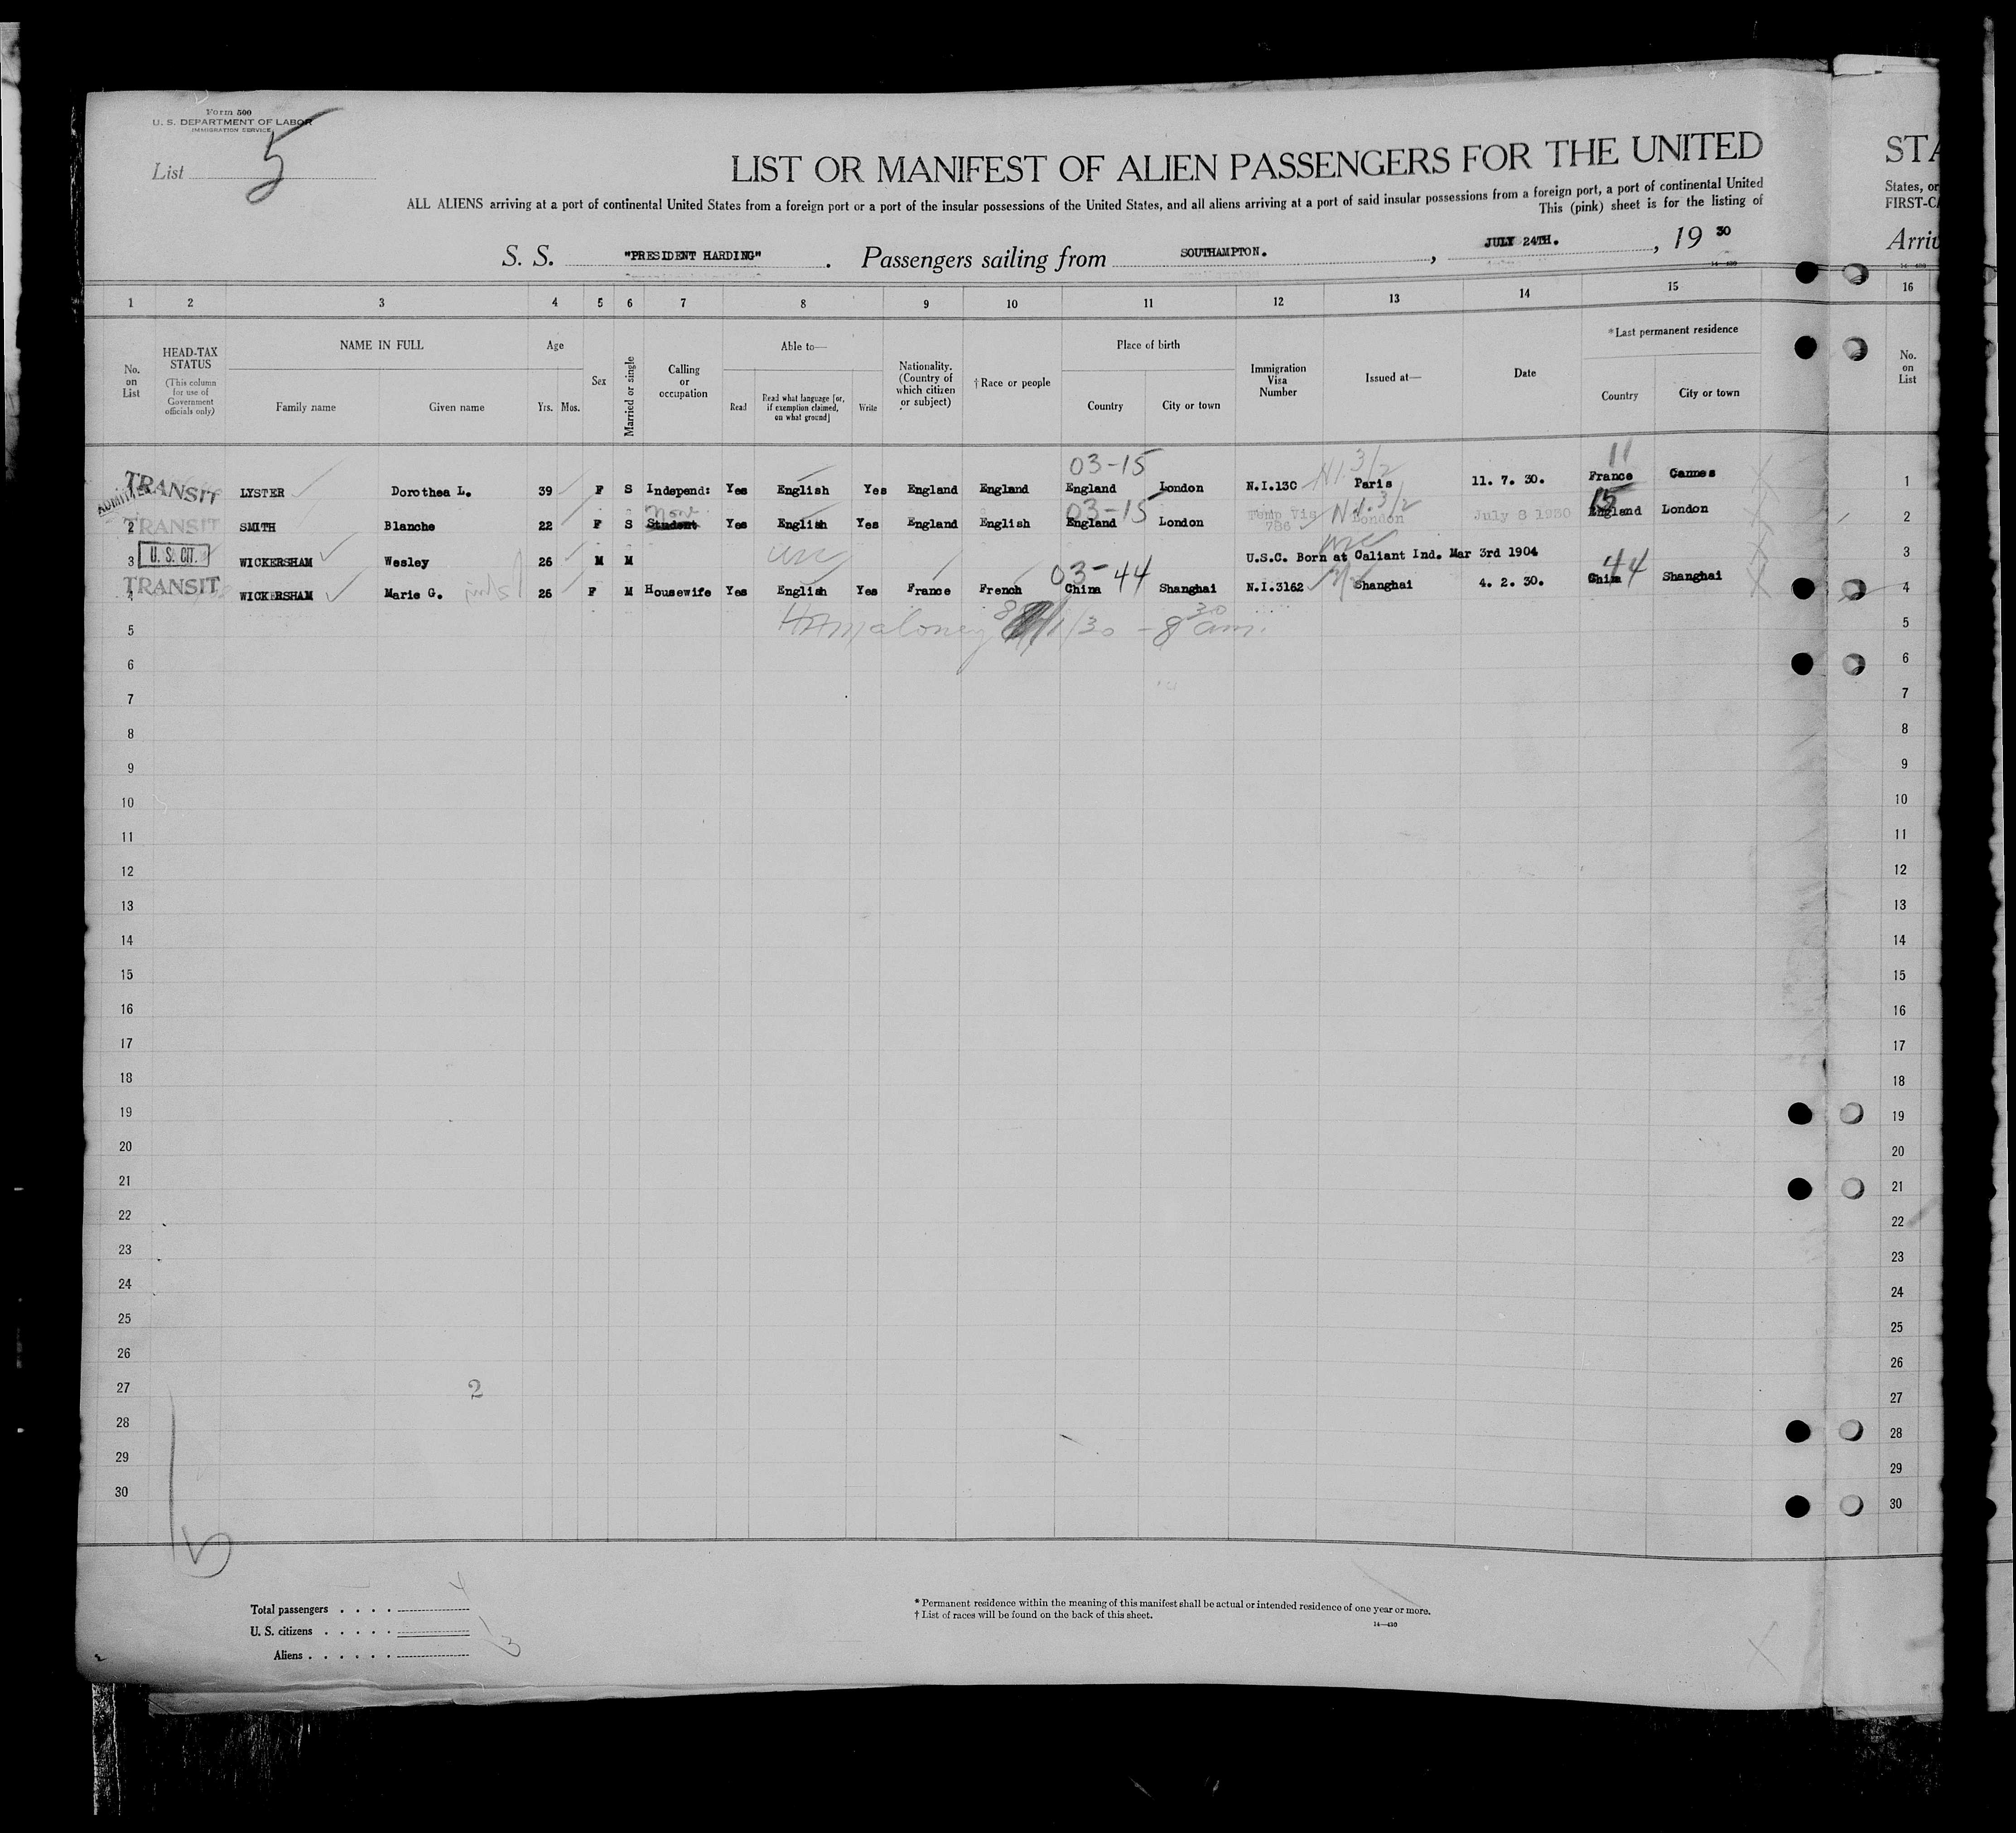 Form 500
U. S. DEPARTMENT OF LABOR
IMMIGRATION SERVICE
List 5
LIST OR MANIFEST OF ALIEN PASSENGERS FOR THE UNITED
ALL ALIENS arriving at a port of continental United States from a foreign port or a port of the insular possessions of the United States, and all aliens arriving at a port of said insular possessions from a foreign port, a port of continental United
This (pink) sheet is for the listing of
S. S. "PRESIDENT HARDING". Passengers sailing from SOUTHAMPTON. , JULY 24TH. , 19 30
14—430
1 2 3 4 5 6 7 8 9 10 11 12 13 14 15
No. on List
HEAD-TAX STATUS
(This column for use of Government officials only)
NAME IN FULL
Family name
Given name
Age
Yrs.
Mos.
Sex
Married or single
Calling or occupation
Able to—
Read
Read what language [or, if exemption claimed, on what ground]
Write
Nationality. (Country of which citizen or subject)
†Race or people
Place of birth
Country
City or town
Immigration Visa Number
Issued at—
Date
*Last permanent residence
Country
City or town
03-15 N1 3/2 11
ADMITTED TRANSIT LYSTER Dorothea L. 39 F S Independ: Yes English Yes England England England London N.I.130 Paris 11. 7. 30. France Cannes
None 03-15 N.1.3/2 15
2 TRANSIT SMITH Blanche 22 F S Student Yes English Yes England English England London Temp Vis 786 London July 8 1930 England London
3 U. S. CIT. WICKERSHAM Wesley 26 M M U.S.C. Born at Caliant Ind. Mar 3rd 1904
03-44 44
4 TRANSIT WICKERSHAM Marie G. 26 F M Housewife Yes English Yes France French China Shanghai N.I.3162 Shanghai 4. 2. 30. China Shanghai
5
6
7
8
9
10
11
12
13
14
15
16
17
18
19
20
21
22
23
24
25
26
27 2
28
29
30
5
Total passengers . . . . 4
U. S. citizens . . . . . 1
Aliens . . . . . . 3
* Permanent residence within the meaning of this manifest shall be actual or intended residence of one year or more.
† List of races will be found on the back of this sheet.
14—430
STA
States, or
FIRST-CA
Arriv
16
No. on List
1
2
3
4
5
6
7
8
9
10
11
12
13
14
15
16
17
18
19
20
21
22
23
24
25
26
27
28
29
30